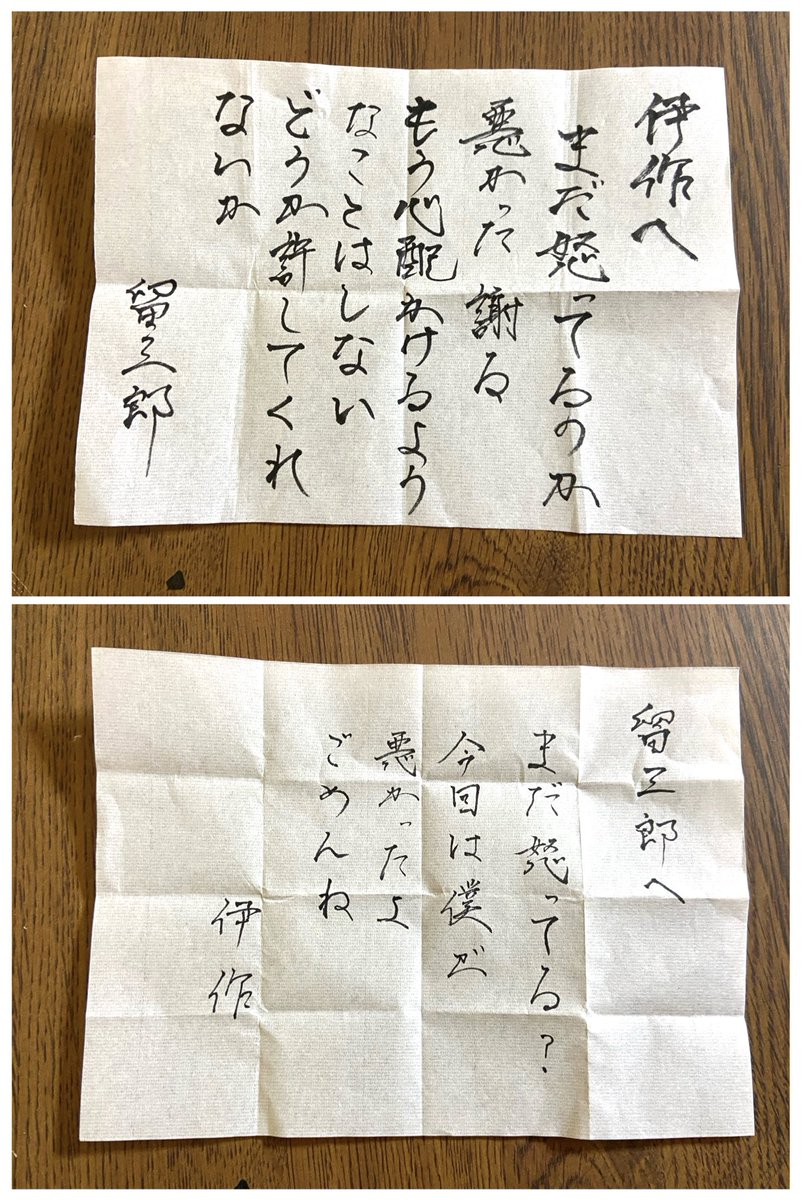 伊作へ
まだ怒ってるのか
悪かった 謝る
もう心配かけるよう
なことはしない
どうか許してくれ
ないか
留三郎
留三郎へ
まだ怒ってる?
今回は僕が
悪かったよ
ごめんね
伊作